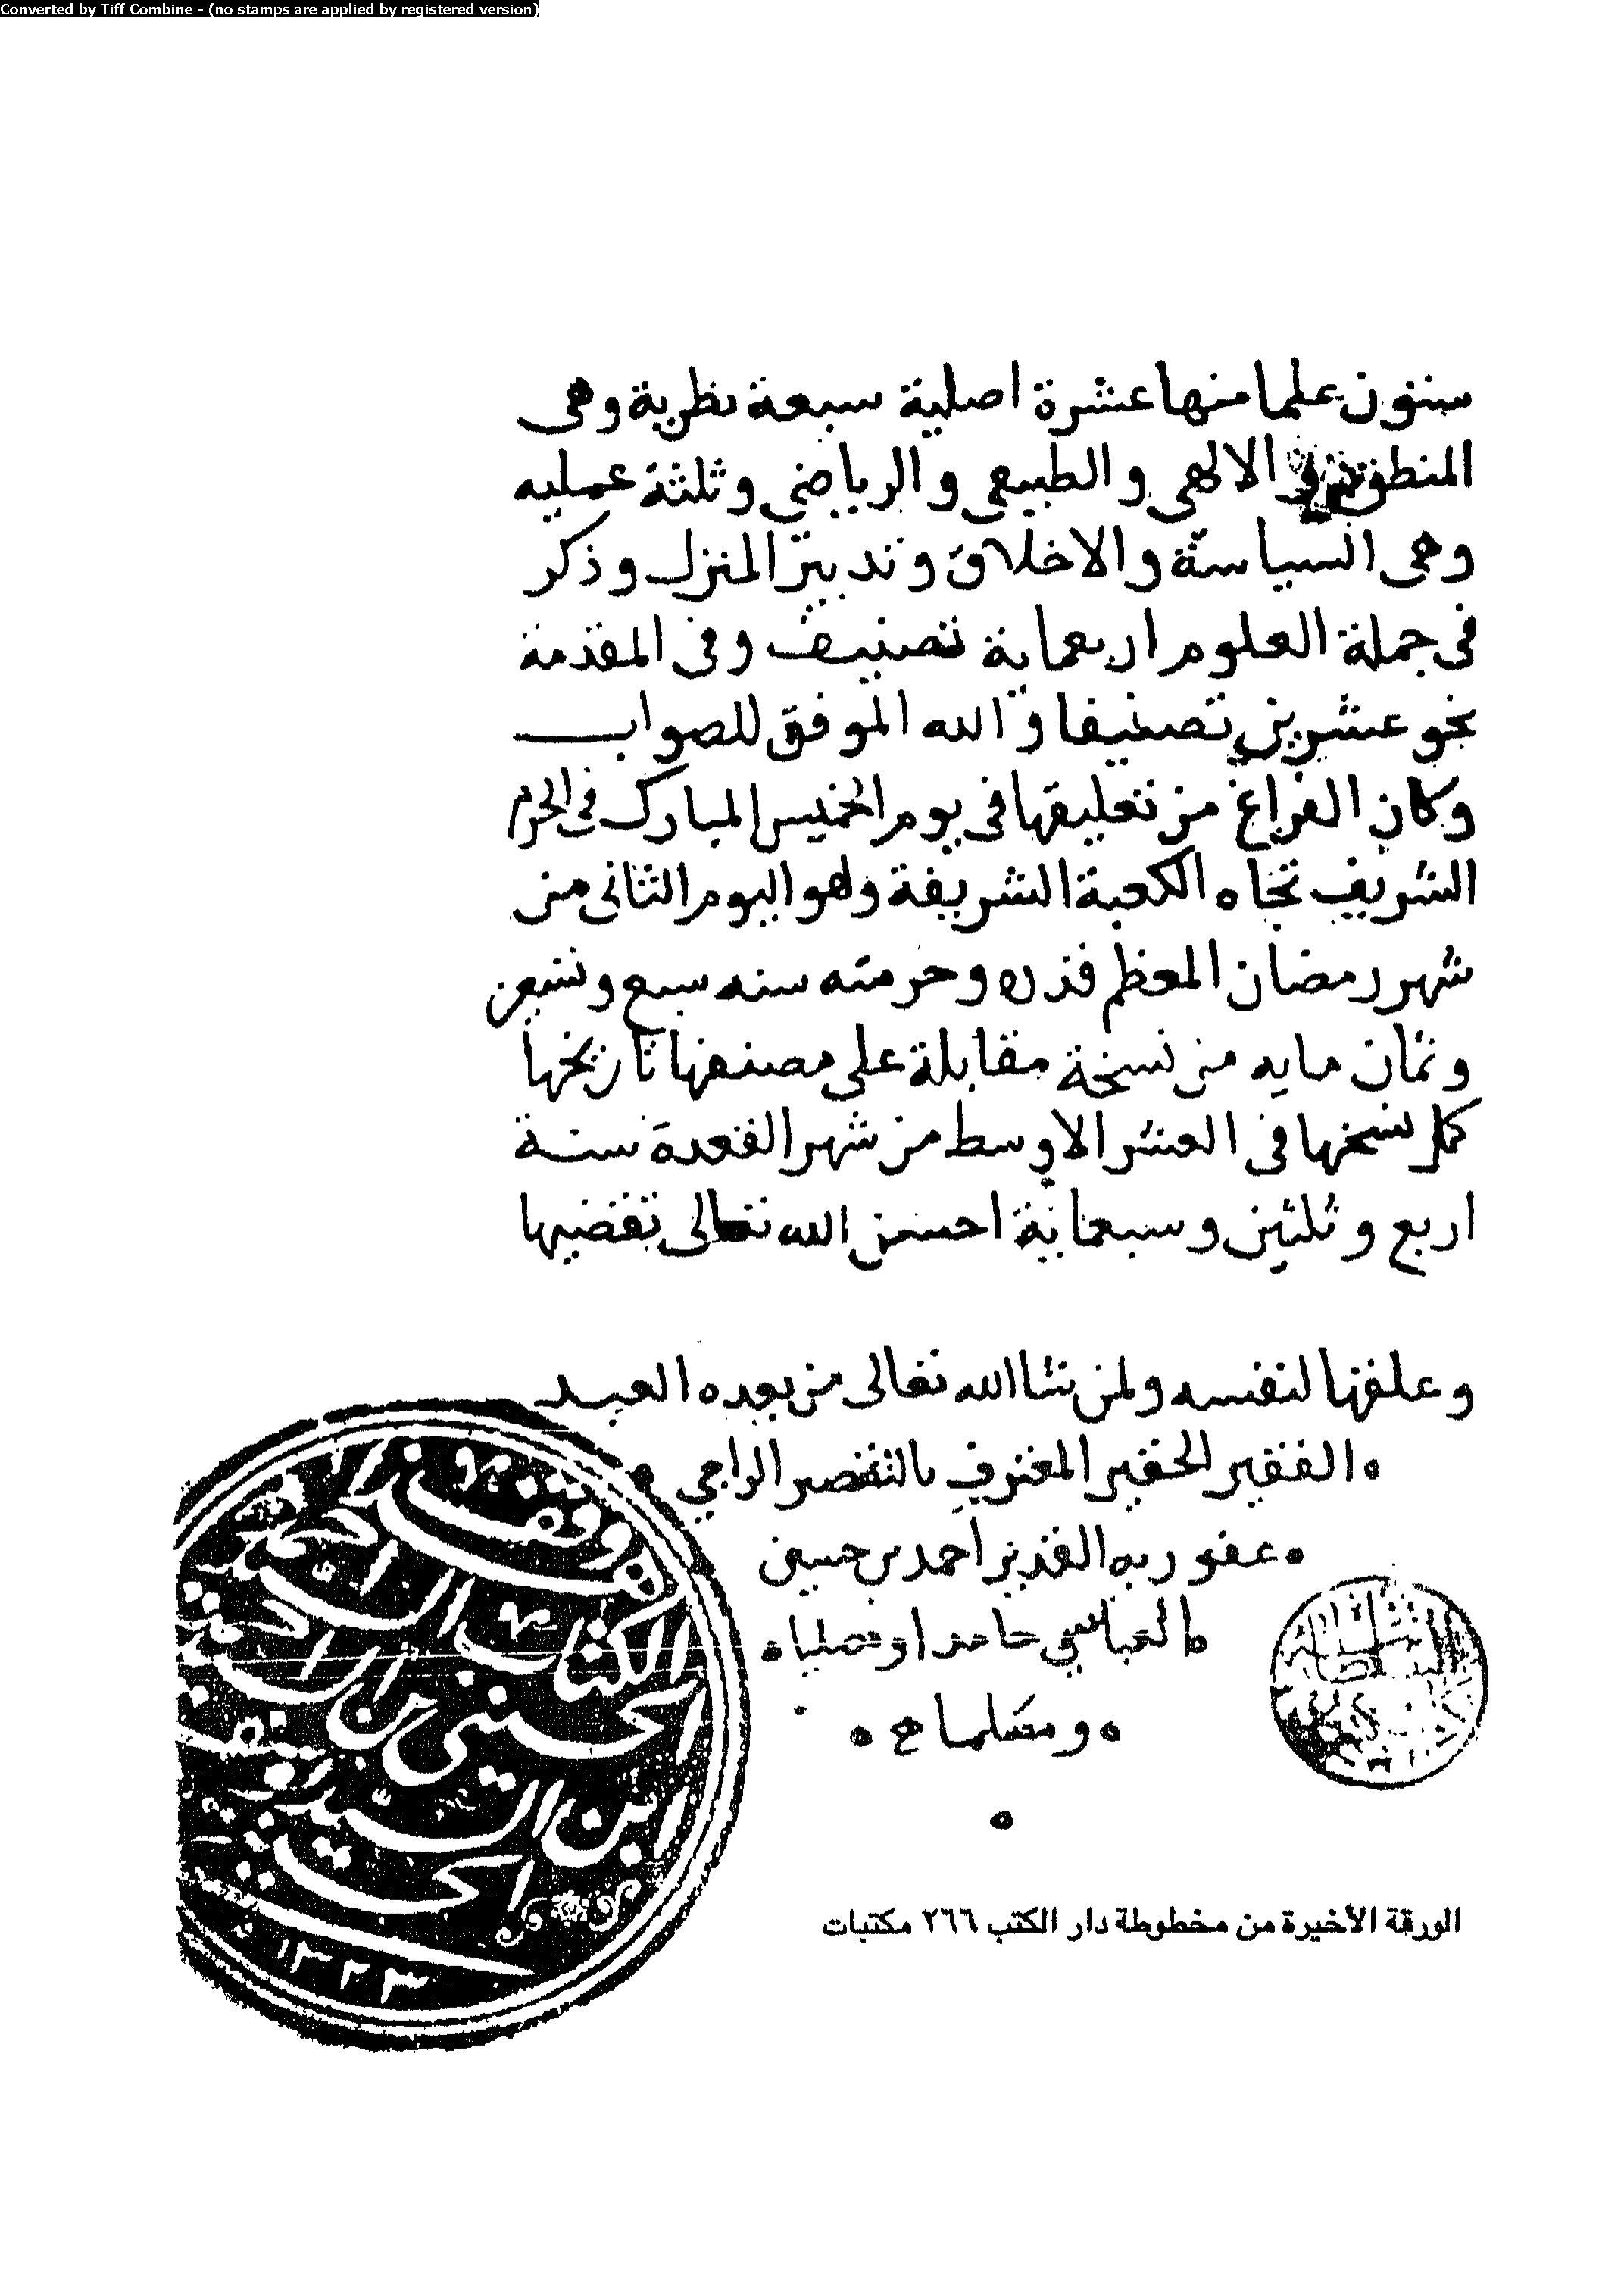 Converted by Tiff Combine - (no stamps are applied by registered version)
ستون علما منها عشرة اصلية سبعة نظرية وهى
المنطق و الالهى والطبيعى والرياضى وثلثة عمليه
وهى السياسة والاخلاق وتدبير المنزل وذكر
فى جملة العلوم اربعماية تصنيف وفى المقدمة
نحو عشرين تصنيفا والله الموفق للصواب
وكان الفراغ من تعليقها فى يوم الخميس المبارك فى الحرم
الشريف تجاه الكعبة الشريفة وهو اليوم الثانى من
شهر رمضان المعظم قدره وحرمته سنه سبع وتسعين
وثمان مايه من نسخة مقابلة على مصنفها تاريخها
كمل نسخها فى العشر الاوسط من شهر القعدة سنة
اربع وثلثين وسبعماية احسن الله تعالى تقضيها
وعلقها لنفسه ولمن شا الله تعالى من بعده العبد
الفقير الحقير المعترف بالتقصير الراجى
عفو ربه القدير احمد بن حسين
العباسي حامدا ومصليا
ومسلما
وقف هذا
الكتاب السيد احمد
الحسينى بن السيد احمد
ابن السيد
الحسينى
١٣٢٣
الورقة الأخيرة من مخطوطة دار الكتب ٢٦٦ مكتبات